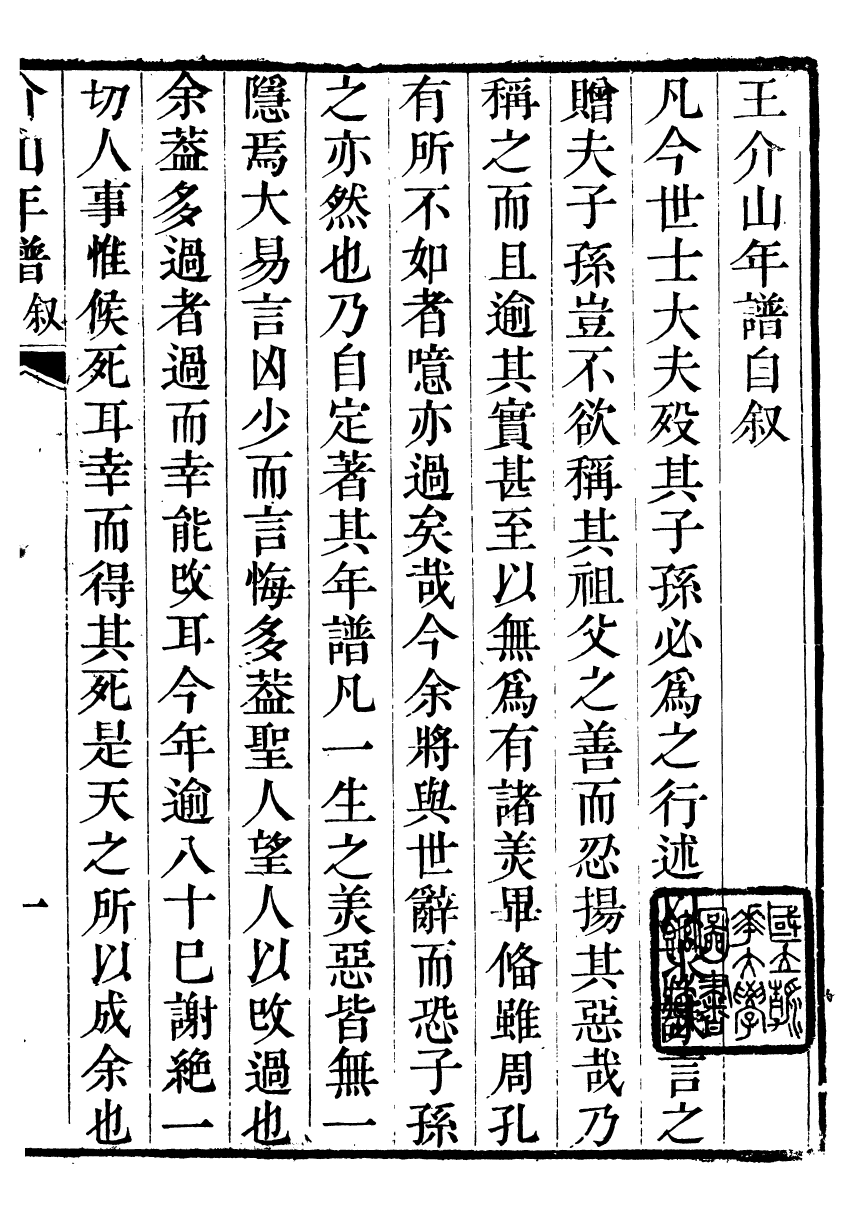 王介山年譜自叙
凡今世士大夫殁其子孫必爲之行述言之
贈夫子孫豈不欲稱其祖父之善而忍揚其惡哉乃
稱之而且逾其實甚至以無爲有諸美畢偹雖周孔
有所不如者噫亦過矣哉今余將與世辭而恐子孫
之亦然也乃自定著其年譜凡一生之美惡皆無一
隱焉大易言凶少而言悔多葢聖人望人以改過也
余葢多過者過而幸能改耳今年逾八十已謝絶一
切人事惟候死耳幸而得其死是天之所以成余也
介山年譜 叙 一
國立清
華大學
圖書